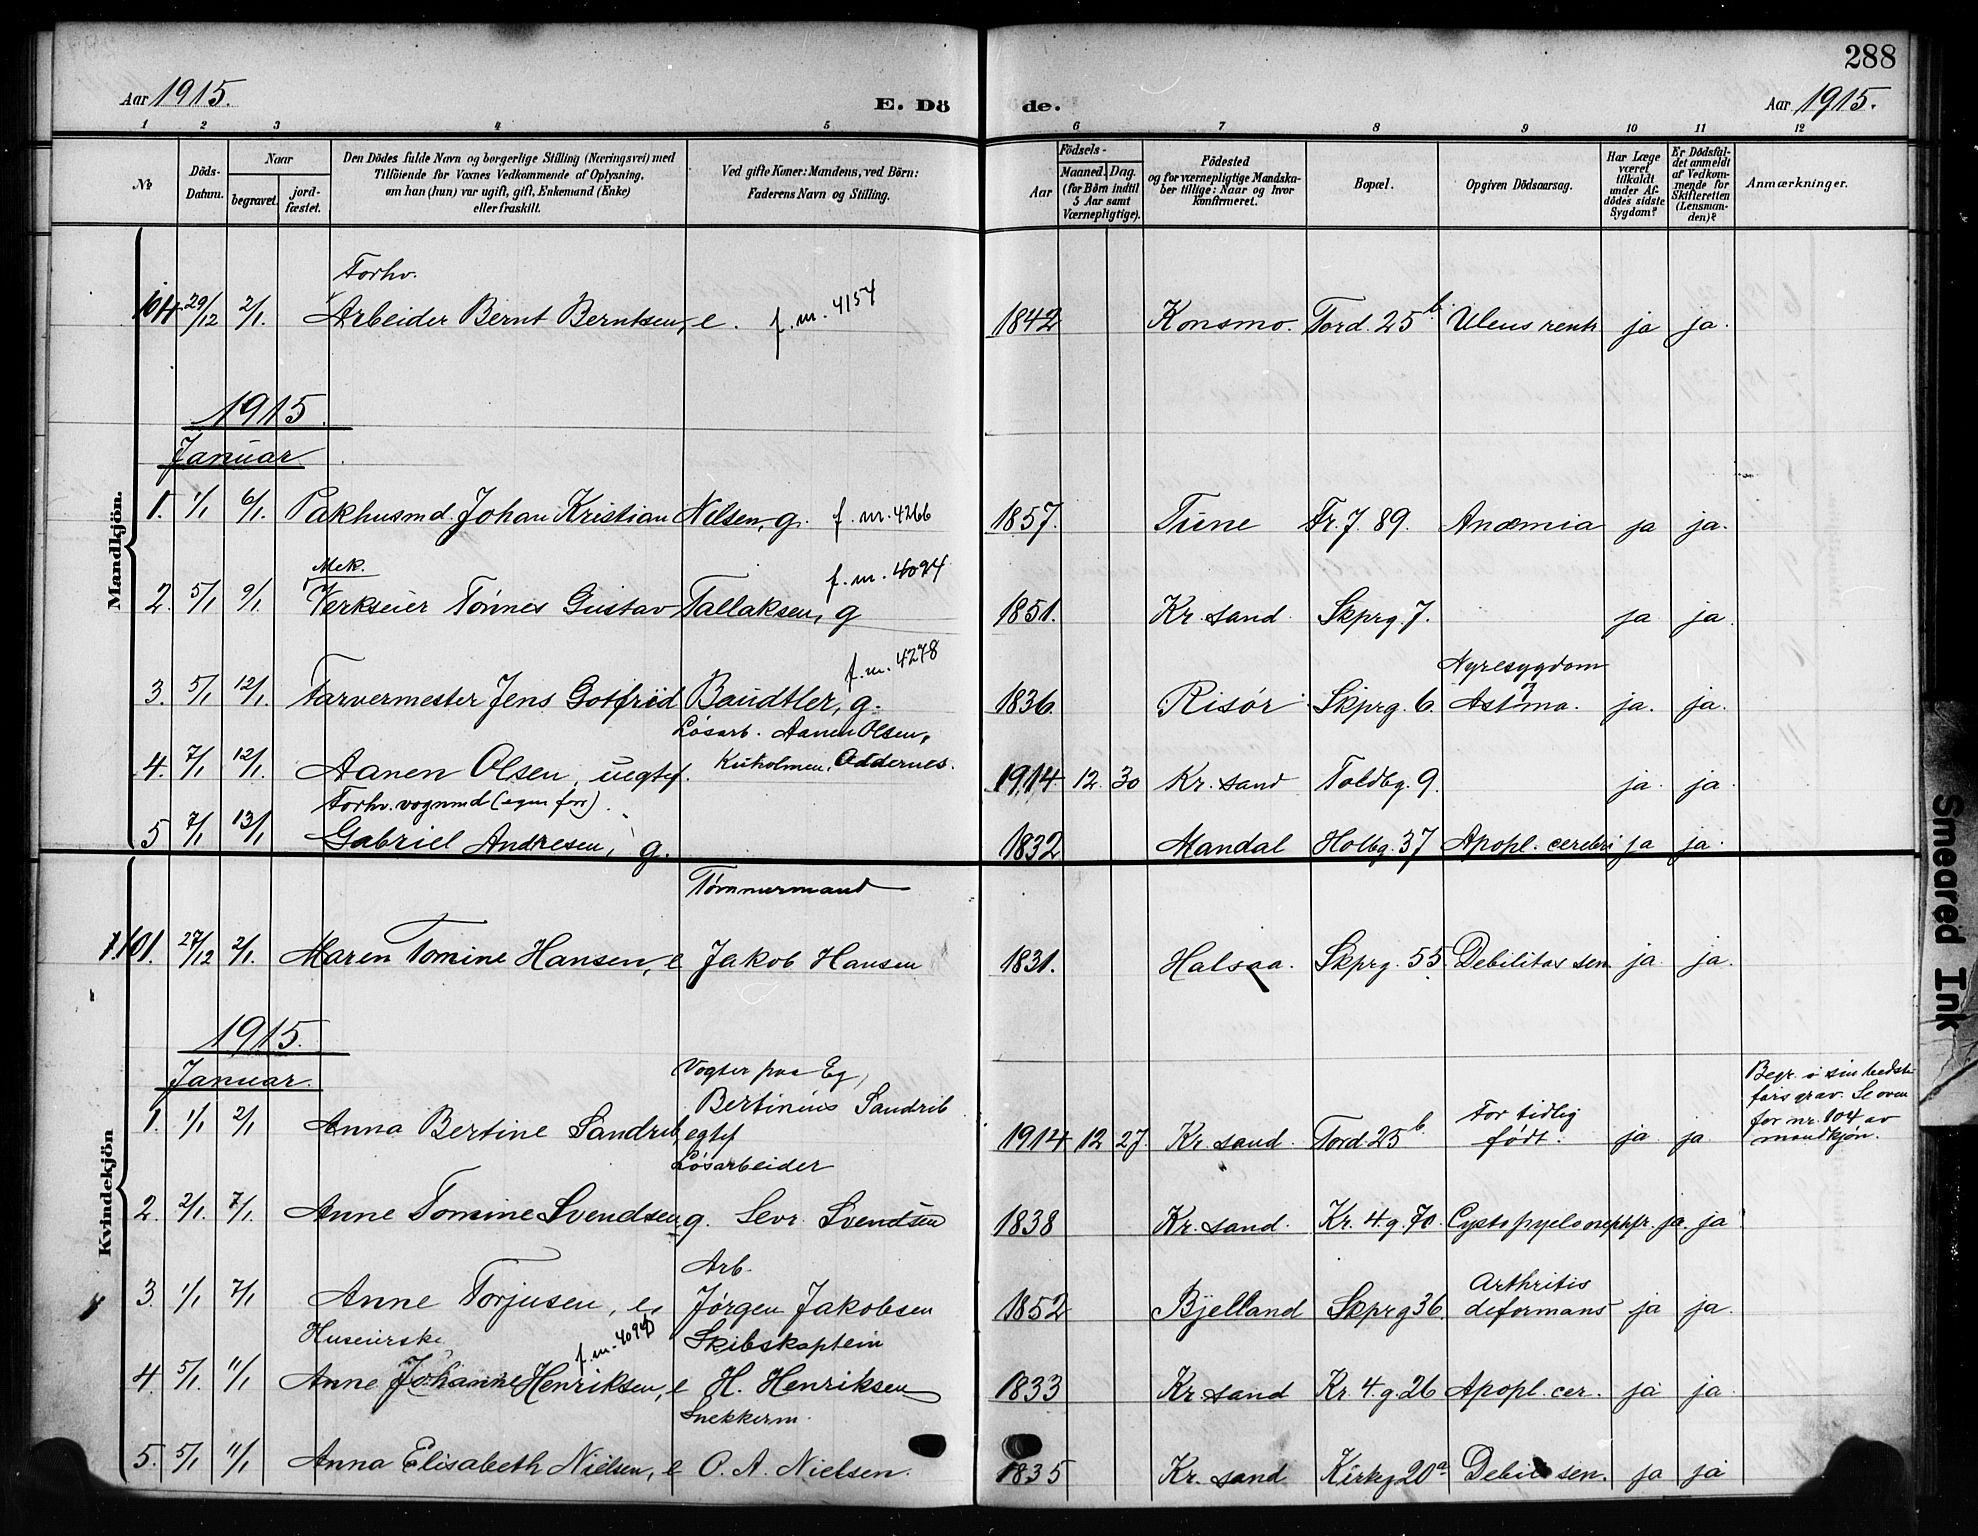 288
Aar 1915.
E. Dö de.
Aar 1915.
1 2 3 4 5 6 7 8 9 10 11 12
No
Döds-Datum.
Naar
begravet.
jord-fæstet.
Den Dödes fulde Navn og borgerlige Stilling (Næringsvei) med
Tilföiende for Voxnes Vedkommende af Oplysning,
om han (hun) var ugift, gift, Enkemand (Enke)
eller fraskilt.
Ved gifte Koner: Mandens, ved Börn:
Faderens Navn og Stilling.
Födsels-
Aar
Maaned. Dag.
(for Börn indtil
5 Aar samt
Værnepligtige).
Födested
og for værnepligtige Mandska-
ber tillige: Naar og hvor
konfirmeret.
Bopæl.
Opgiven Dödsaarsag.
Har Læge
været
tilkaldt
under Af-
dödes sidste
Sygdom?
Er Dödsfal-
det anmeldt
af Vedkom-
mende for
Skifteretten
(Lensman-
den)?
Anmærkninger.
Mandkjön.
Forhv.
104 29/12 2/1. Arbeider Bernt Berntsen, e. f. nr. 4154 1842 Konsmo. Tord. 25 b. Ulcus rentr ja ja.
1915.
Januar
1. 1/1 6/1. Pakhusmd. Johan Kristian Nilsen, g. f. nr. 4266 1857. Tune Fr. J. 89. Anæmia ja ja.
Mek. f. nr. 4094
2. 5/1 9/1 Verkseier Tønnes Gustav Tallaksen, g 1851. Kr. sand. Skprg. 7. ja ja.
f. nr. 4278 Nyresygdom
3. 5/1 12/1. Farvermester Jens Gotfred Baudtler, g. 1836. Risør Skprg. 6. Astma. ja. ja.
Løsarb. Aanen Olsen,
4. 7/1 12/1. Aanen Olsen, uegtef. Kuholmen, Oddernes. 1914 12 30 Kr. sand Toldbg. 9. ja. ja.
Forhv. vognmd (egen forr).
5 7/1 13/1 Gabriel Andresen, g. 1832 Mandal Holbg. 37 Apopl. cerebri ja ja.
Kvindekjön
Tømmermand
101. 27/12 2/1. Maren Tomine Hansen, e Jakob Hansen 1831. Halsaa. Skprg. 55. Debilitas sen. ja. ja.
1915.
Januar.
Vogter paa Eg,
Bertinius Sandrib
1. 1/1 2/1 Anna Bertine Sandrib, egtef 1914 12 27. Kr. sand. Tord. 25 b. For tidlig født. ja. ja.
Begr. i sin bedste-
fars grav. Se oven
for nr. 104 av
mandkjøn.
Løsarbeider
2. 2/1. 7/1. Anne Tomine Svendsen, g. Sevr. Svendsen 1838 Kr. sand. Kr. 4. g. 70. Cystopyelonephr. ja. ja
Arb.
3. 1/1 7/1 Anne Torjusen, e. Jørgen Jakobsen 1852 Bjelland Skprg 36. Arthritis deformans ja ja.
Huseierske f. nr. 4094 Skibskaptein
4. 5/1. 11/1 Anne Johanne Henriksen, e H. Henriksen 1833 Kr. sand Kr. 4. g. 26 Apopl. cer. ja ja.
Snekkerm.
5. 5/1 11/1 Anna Elisabeth Nielsen, e O. A. Nielsen. 1835 Kr. sand Kirkg 20 a. Debil. sen. ja ja
Smeared Ink